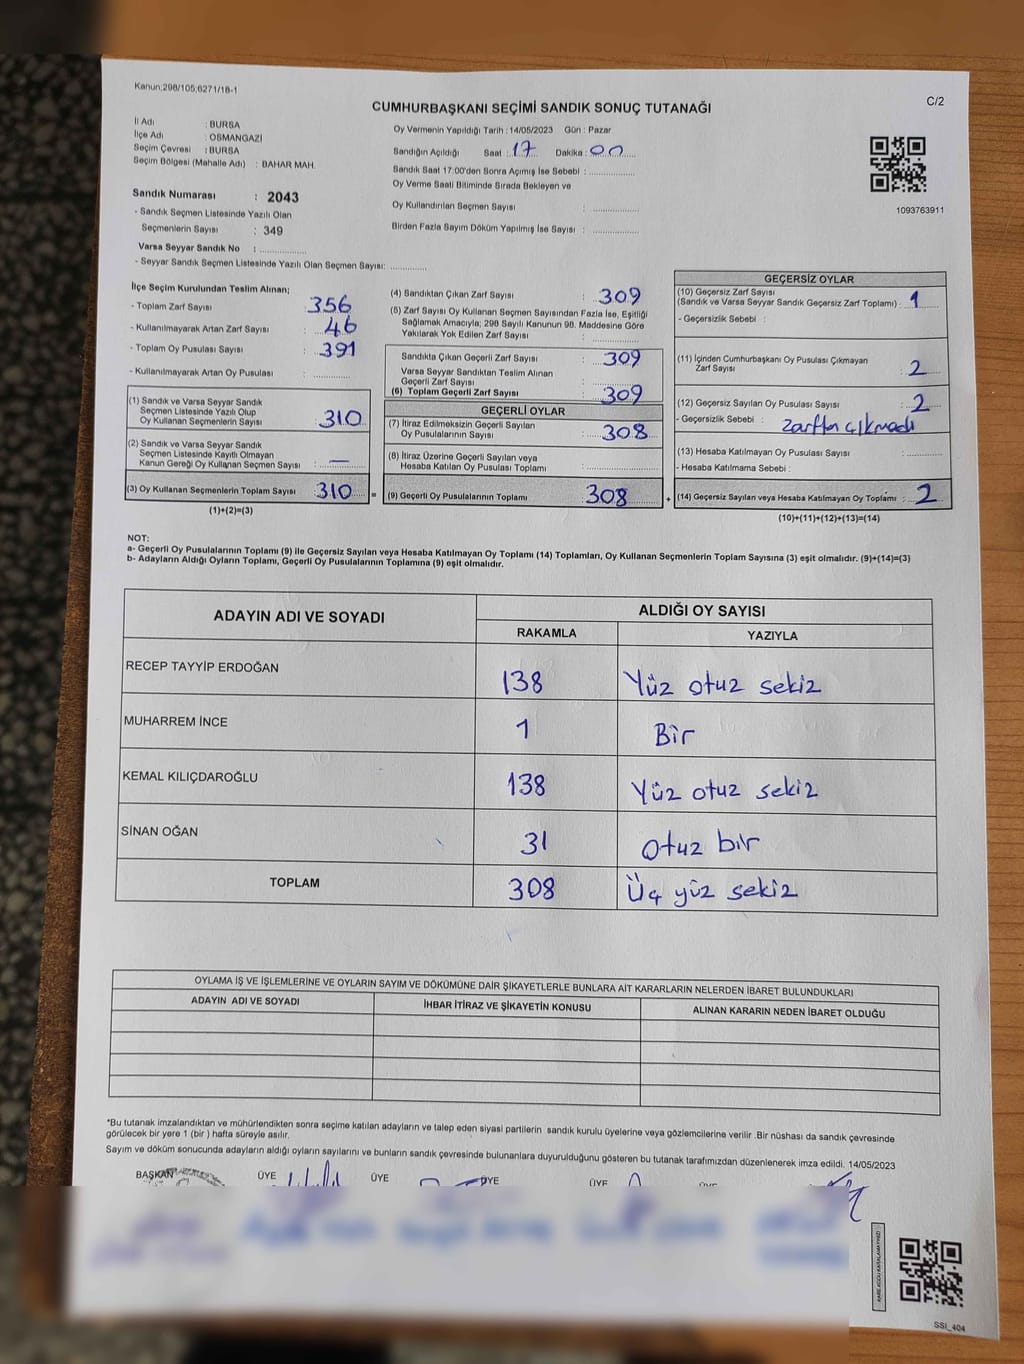 Kanun:298/105;6271/18-1
C/2
CUMHURBAŞKANI SEÇİMİ SANDIK SONUÇ TUTANAĞI
İl Adı : BURSA
İlçe Adı : OSMANGAZİ
Seçim Çevresi : BURSA
Seçim Bölgesi (Mahalle Adı) : BAHAR MAH.
Oy Vermenin Yapıldığı Tarih : 14/05/2023 Gün : Pazar
Sandığın Açıldığı Saat : 17 Dakika : 00
Sandık Saat 17:00'den Sonra Açımış İse Sebebi :
Oy Verme Saati Bitiminde Sırada Bekleyen ve
Oy Kullandırılan Seçmen Sayısı :
Birden Fazla Sayım Döküm Yapılmış İse Sayısı :
1093763911
Sandık Numarası : 2043
- Sandık Seçmen Listesinde Yazılı Olan
Seçmenlerin Sayısı : 349
Varsa Seyyar Sandık No :
- Seyyar Sandık Seçmen Listesinde Yazılı Olan Seçmen Sayısı:
İlçe Seçim Kurulundan Teslim Alınan;
- Toplam Zarf Sayısı : 356
- Kullanılmayarak Artan Zarf Sayısı : 46
- Toplam Oy Pusulası Sayısı : 391
- Kullanılmayarak Artan Oy Pusulası :
(1) Sandık ve Varsa Seyyar Sandık
Seçmen Listesinde Yazılı Olup
Oy Kullanan Seçmenlerin Sayısı : 310
(2) Sandık ve Varsa Seyyar Sandık
Seçmen Listesinde Kayıtlı Olmayan
Kanun Gereği Oy Kullanan Seçmen Sayısı : —
(3) Oy Kullanan Seçmenlerin Toplam Sayısı : 310 =
(1)+(2)=(3)
(4) Sandıktan Çıkan Zarf Sayısı : 309
(5) Zarf Sayısı Oy Kullanan Seçmen Sayısından Fazla İse, Eşitliği
Sağlamak Amacıyla; 298 Sayılı Kanunun 98. Maddesine Göre
Yakılarak Yok Edilen Zarf Sayısı :
Sandıkta Çıkan Geçerli Zarf Sayısı : 309
Varsa Seyyar Sandıktan Teslim Alınan
Geçerli Zarf Sayısı :
(6) Toplam Geçerli Zarf Sayısı : 309
GEÇERLİ OYLAR
(7) İtiraz Edilmeksizin Geçerli Sayılan
Oy Pusulalarının Sayısı : 308
(8) İtiraz Üzerine Geçerli Sayılan veya
Hesaba Katılan Oy Pusulası Toplamı :
(9) Geçerli Oy Pusulalarının Toplamı : 308 +
GEÇERSİZ OYLAR
(10) Geçersiz Zarf Sayısı
(Sandık ve Varsa Seyyar Sandık Geçersiz Zarf Toplamı) : 1
- Geçersizlik Sebebi :
(11) İçinden Cumhurbaşkanı Oy Pusulası Çıkmayan
Zarf Sayısı : 2
(12) Geçersiz Sayılan Oy Pusulası Sayısı : 2
- Geçersizlik Sebebi : Zarftan çıkmadı
(13) Hesaba Katılmayan Oy Pusulası Sayısı :
- Hesaba Katılmama Sebebi :
(14) Geçersiz Sayılan veya Hesaba Katılmayan Oy Toplamı : 2
(10)+(11)+(12)+(13)=(14)
NOT:
a- Geçerli Oy Pusulalarının Toplamı (9) ile Geçersiz Sayılan veya Hesaba Katılmayan Oy Toplamı (14) Toplamları, Oy Kullanan Seçmenlerin Toplam Sayısına (3) eşit olmalıdır. (9)+(14)=(3)
b- Adayların Aldığı Oyların Toplamı, Geçerli Oy Pusulalarının Toplamına (9) eşit olmalıdır.
ADAYIN ADI VE SOYADI ALDIĞI OY SAYISI
RAKAMLA YAZIYLA
RECEP TAYYİP ERDOĞAN 138 Yüz otuz sekiz
MUHARREM İNCE 1 Bir
KEMAL KILIÇDAROĞLU 138 Yüz otuz sekiz
SİNAN OĞAN 31 Otuz bir
TOPLAM 308 Üç yüz sekiz
OYLAMA İŞ VE İŞLEMLERİNE VE OYLARIN SAYIM VE DÖKÜMÜNE DAİR ŞİKAYETLERLE BUNLARA AİT KARARLARIN NELERDEN İBARET BULUNDUKLARI
ADAYIN ADI VE SOYADI İHBAR İTİRAZ VE ŞİKAYETİN KONUSU ALINAN KARARIN NEDEN İBARET OLDUĞU
*Bu tutanak imzalandıktan ve mühürlendikten sonra seçime katılan adayların ve talep eden siyasi partilerin sandık kurulu üyelerine veya gözlemcilerine verilir .Bir nüshası da sandık çevresinde
görülecek bir yere 1 (bir ) hafta süreyle asılır.
Sayım ve döküm sonucunda adayların aldığı oyların sayılarını ve bunların sandık çevresinde bulunanlara duyurulduğunu gösteren bu tutanak tarafımızdan düzenlenerek imza edildi. 14/05/2023
BAŞKAN ÜYE ÜYE ÜYE ÜYE
SSİ_404